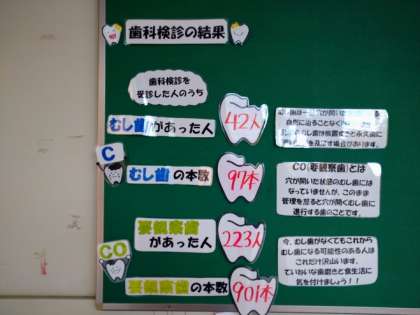 歯科検診の結果
歯科検診を
受診した人のうち
むし歯があった人
42人
C
むし歯の本数
97本
要観察歯
があった人
223人
CO
要観察歯の本数
901本
自然に治ることなく
CO(要観察歯)とは
穴が開いた状態のむし歯には
なっていませんが、このまま
管理を怠ると穴が開くむし歯に
進行する歯のことです。
今、むし歯がなくてもこれから
むし歯になる可能性のある人は
これだけ沢山います。
ていねいな歯磨きと食生活に
気を付けましょう！！